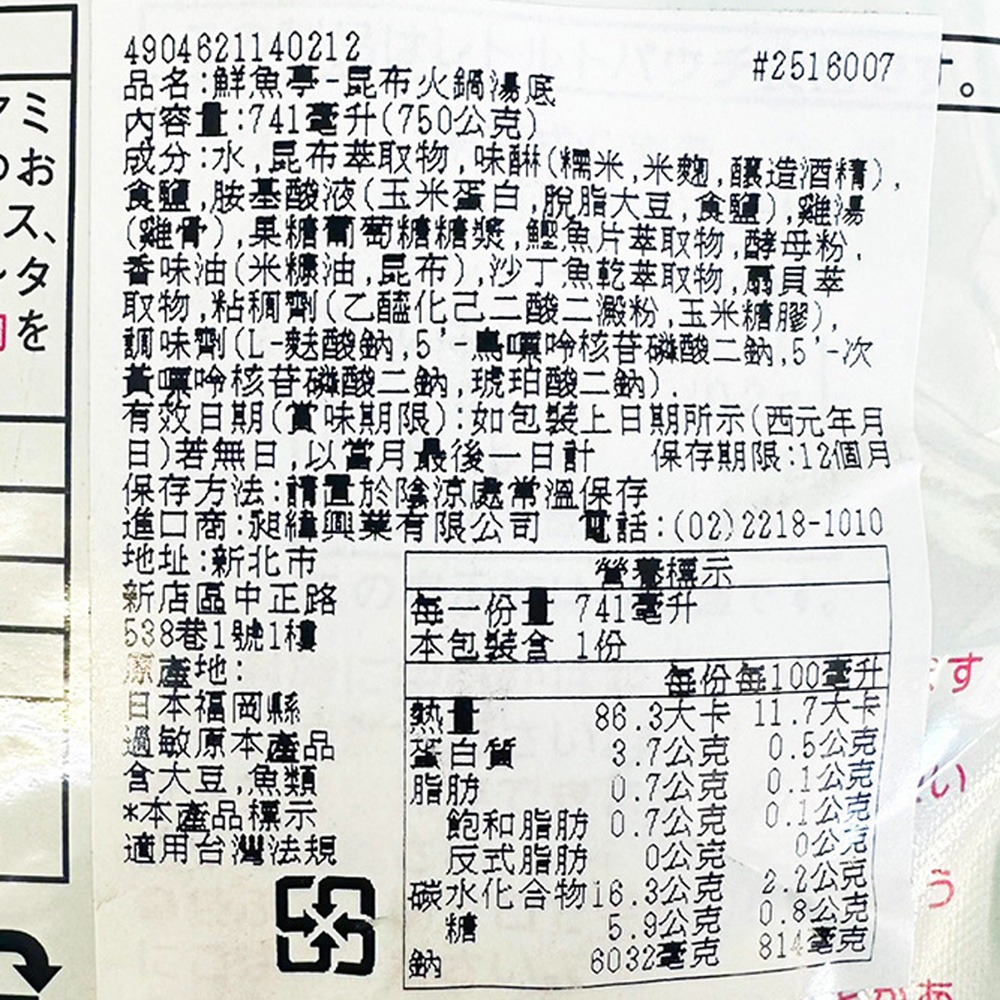 4904621140212
#2516007
品名:鮮魚亭-昆布火鍋湯底
內容量:741毫升(750公克)
成分:水,昆布萃取物,味醂(糯米,米麴,釀造酒精),
食鹽,胺基酸液(玉米蛋白,脫脂大豆,食鹽),雞湯
(雞骨),果糖葡萄糖糖漿,鰹魚片萃取物,酵母粉,
香味油(米糠油,昆布),沙丁魚乾萃取物,扇貝萃
取物,粘稠劑(乙醯化己二酸二澱粉,玉米糖膠),
調味劑(L-麩酸鈉,5'-鳥嘌呤核苷磷酸二鈉,5'-次
黃嘌呤核苷磷酸二鈉,琥珀酸二鈉).
有效日期(賞味期限):如包裝上日期所示(西元年月
日)若無日,以當月最後一日計 保存期限:12個月
保存方法:請置於陰涼處常溫保存
進口商:昶緯興業有限公司 電話:(02)2218-1010
地址:新北市
新店區中正路
538巷1號1樓
原產地:
日本福岡縣
過敏原本產品
含大豆,魚類
*本產品標示
適用台灣法規
營養標示
每一份量 741毫升
本包裝含 1份
每份 每100毫升
熱量 86.3大卡 11.7大卡
蛋白質 3.7公克 0.5公克
脂肪 0.7公克 0.1公克
飽和脂肪 0.7公克 0.1公克
反式脂肪 0公克 0公克
碳水化合物 16.3公克 2.2公克
糖 5.9公克 0.8公克
鈉 6032毫克 814毫克
ミ
お
ス、
タ
を
す
い
う